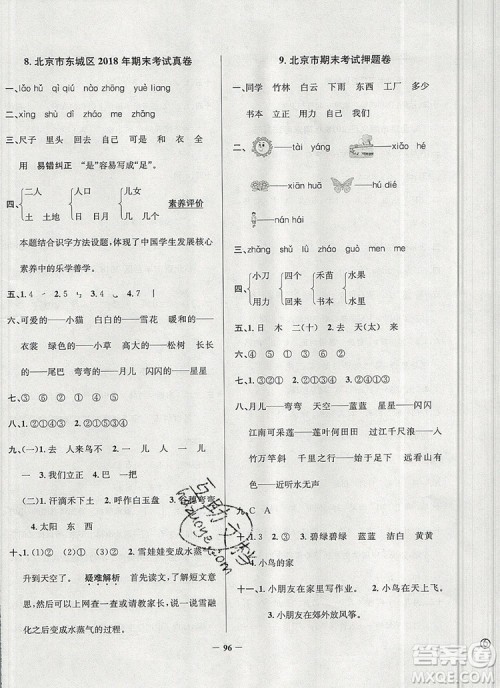 8. 北京市东城区 2018 年期末考试真卷
一、lǎo hǔ qì qiú nào zhōng zhuō zi
二、xīng shù dì shuō míng qíng
三、尺子 里头 回去 真心 和 衣 全
用 易错纠正 “是”容易写成“足”。
四、二人 人口 儿女
土 土地 月儿 素养评价
本题结合识字方法设题，体现了中国学生发展核心
素养中的乐学善学。
五、1. 4 - 2. 5 4 ﹁ 3. 4 7 丿
六、可爱的——小猫 白白的——雪花 暖暖的——
衣裳 绿色的——小船 高大的——松树 长长的——
尾巴 弯弯的——月儿 闪闪的——星星
七、③⑤④①②
八、1. ②①③④ 2. ②①③④
九、(一)1. 去 2. 来 人来鸟不
(二)1. 我们立正 2. 巴 巴
十、(一)1. 汗滴禾下土 2. 呼作白玉盘
4. 太阳 东 西
十一、1. (1)√ (2)√ (3)× 2. 雪娃娃变成水蒸气
升到天空了。 疑难解析 首先读文，了解短文意
思，可以上网查一查或翻书看一看，知道雪融
化之后变成水蒸气的过程。
9. 北京市期末考试押题卷
一、同学 竹林 白云 下雨 东西 工厂 多少
书本 立正 用力 自己 大衣
二、——tài yáng ——xiǎo hé
——xiān huā ——hú dié
——nán hái
三、zhāng shǔ lǜ shǔ duǒ guó men me
四、小刀 四个 禾苗 水果
用力 回来 木头 果子
五、1. 日 木 田(十) 2. 去 天(太) 来
六、④ ⑤ ② ① ③ ⑥
七、1. ③①② 2. ①③② 3. ③②①
八、月儿——弯弯 天空——蓝蓝 星星——闪闪
江南可采莲——莲叶何田田 红红的太阳——
立正 可爱的小鸟——飞来飞去 床前——人
竹万竿斜 远看山有色
——近听水无声
九、C A
十、1. ②①③ 2. ①③② 3. 碧绿碧绿 蓝蓝 洁白 黄黄
十一、1. 3 2. 小鸟的家
十二、1. 小朋友在家里写作业。 2. 小鸟在天上飞。
3. 小朋友在郊外放风筝。
96